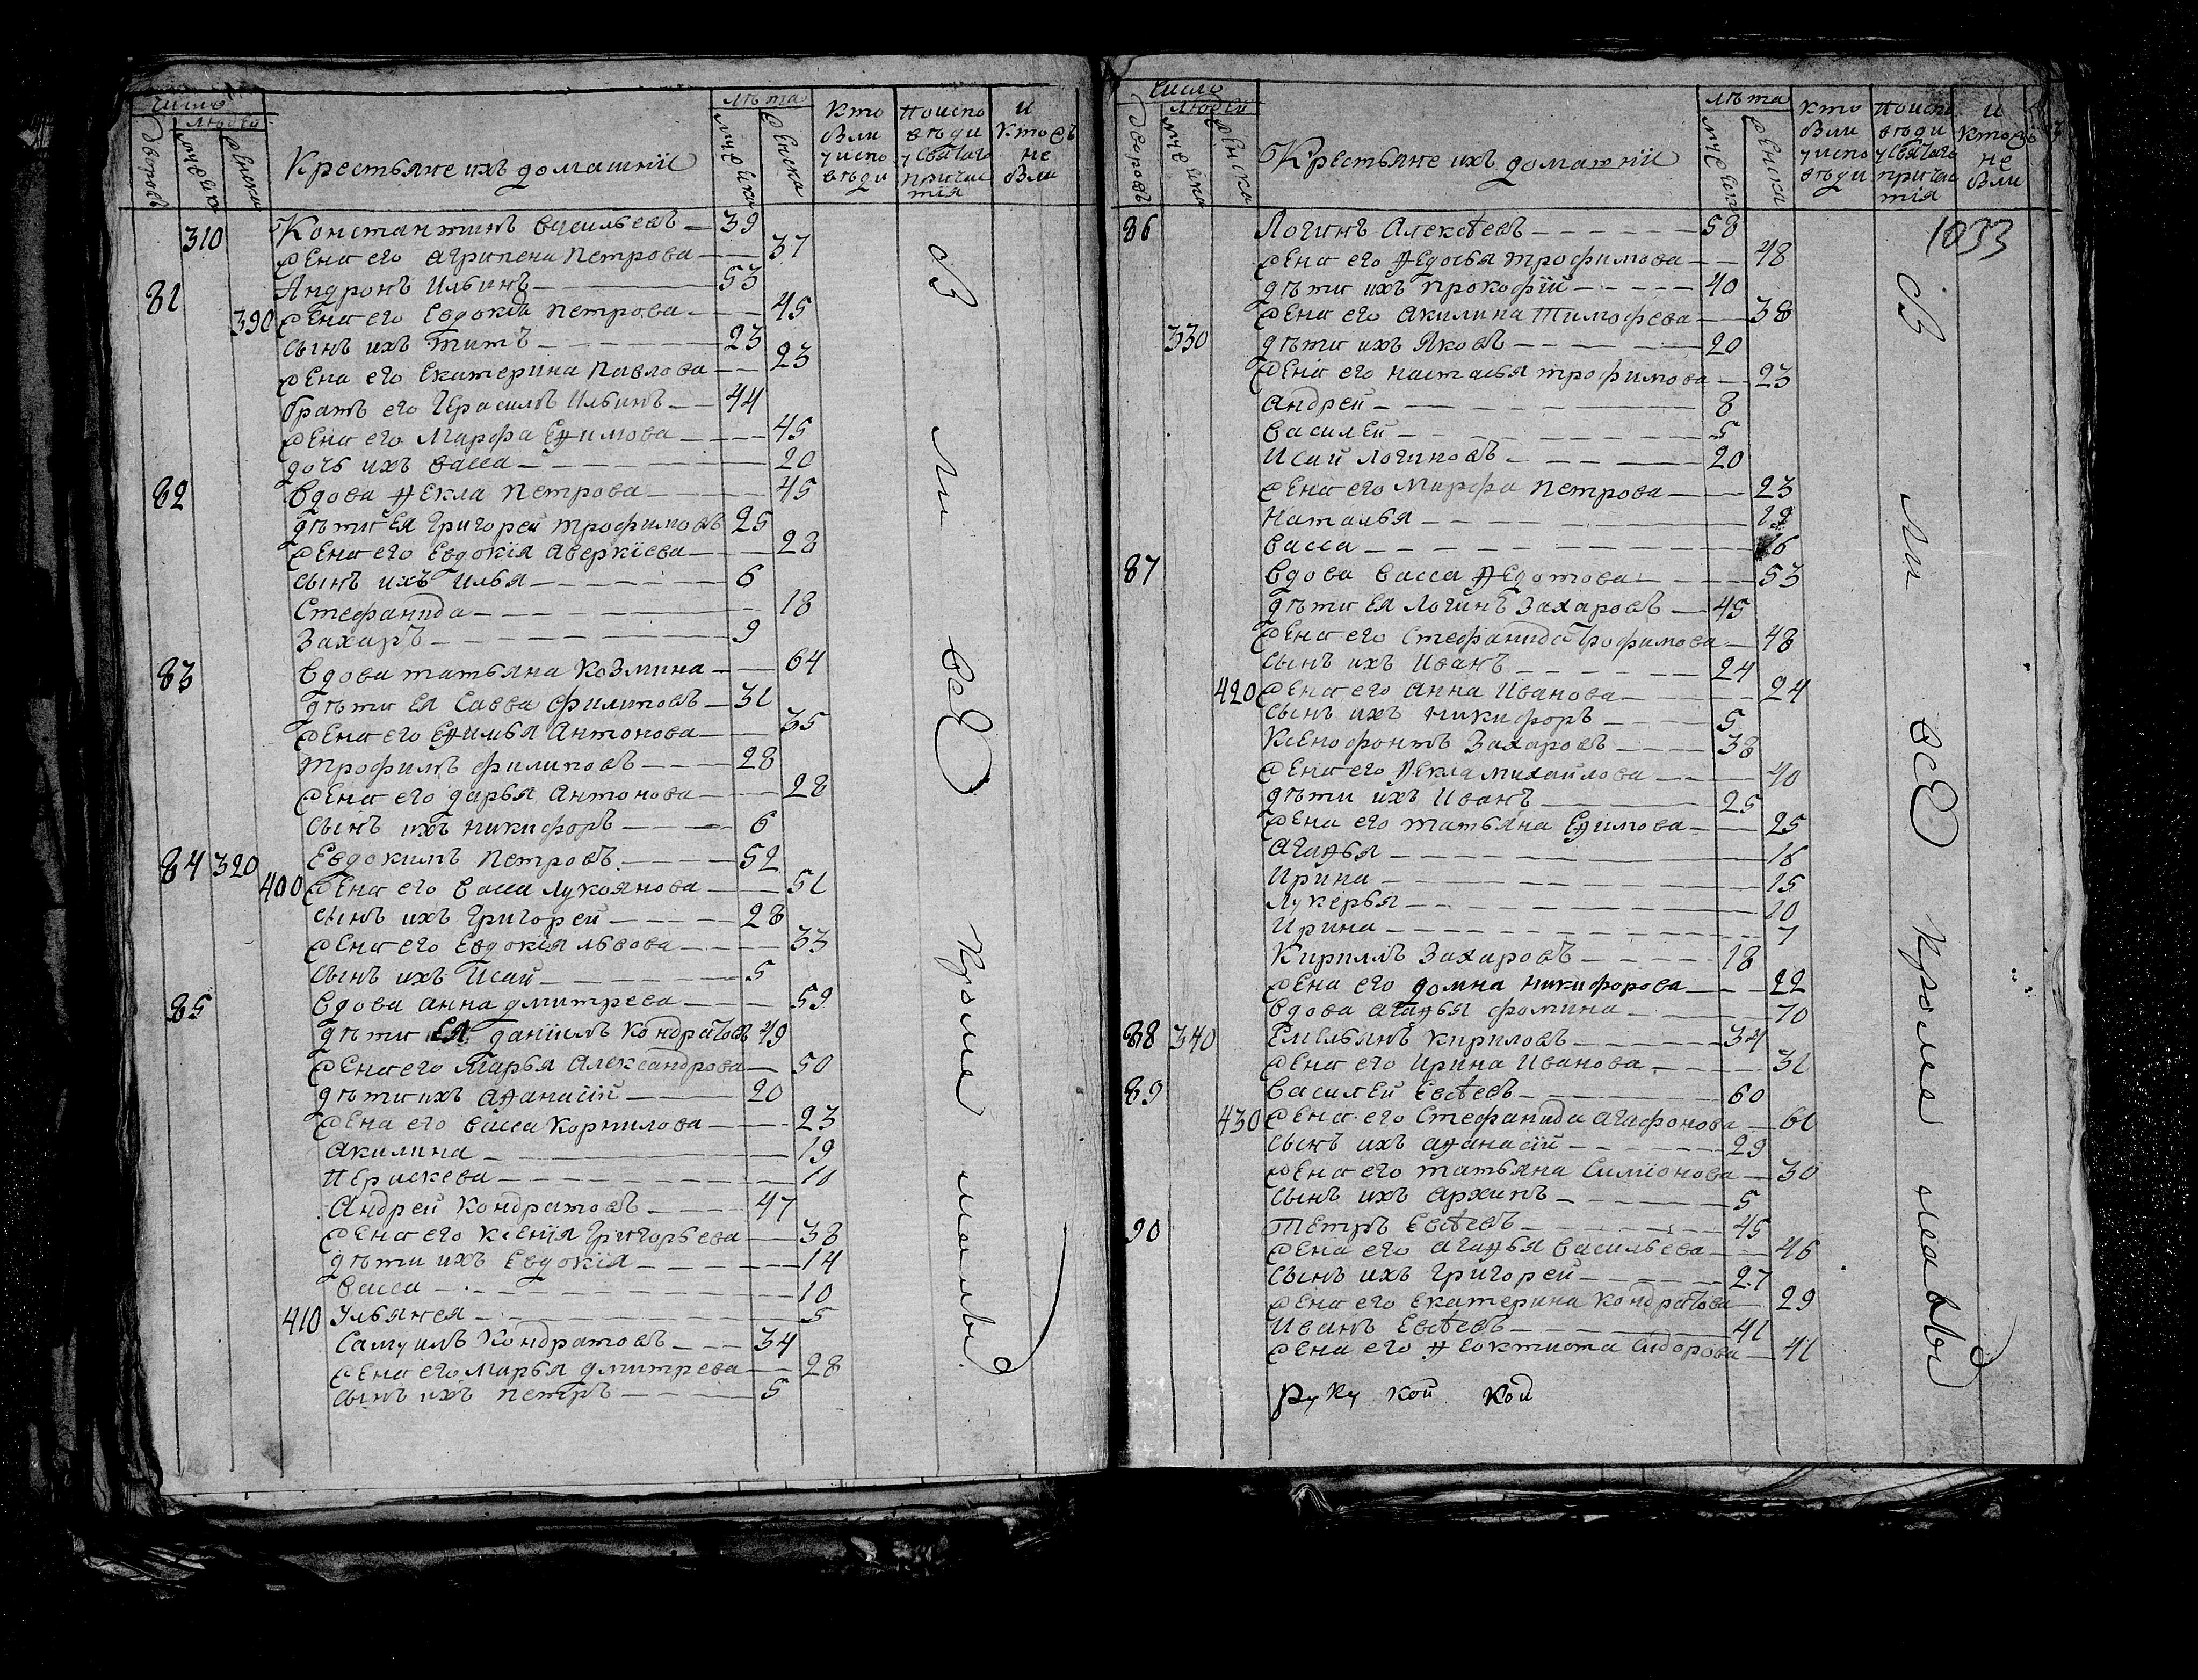 Число
Людей
лѣта
дворовъ
мужеска
женска
Крестьяне ихъ домашнїи
мужеска
женска
кто были у исповѣди
поисповѣди у святаго причастія
и кто съ не были
310 Константинъ васильевъ 39
жена его агрипена Петрова 37
81 Андронъ Ильинъ 53
390 жена его Евдокія Петрова 45
сынъ ихъ титъ 23
жена его Екатерина Павлова 23
братъ его Герасимъ Ильинъ 44
жена его Марфа Еѳимова 45
дочь ихъ васса 20
82 вдова ѳекла Петрова 45
дѣти Ея Григореи трофимовъ 25
жена его Евдокїя Аверкїева 28
сынъ ихъ илья 6
Стефанида 18
Захаръ 9
83 вдова татьяна козмина 64
дѣти Ея Савва филиповъ 31
жена его Еѳимья Антонова 35
трофимъ филиповъ 28
жена его дарья Антонова 28
сынъ ихъ никифоръ 6
84 320 Евдокимъ Петровъ 52
400 жена его васса лукоянова 51
сынъ ихъ григореи 28
жена его Евдокїя львова 33
сынъ ихъ Исаи 5
85 вдова анна дмитрева 59
дѣти Ея данїилъ кондратовъ 49
жена его Марья Александрова 50
дѣти ихъ аѳанасїй 20
жена его васса корнилова 23
акилина 19
перискева 11
Андреи кондратовъ 47
жена его ксенїя григорьева 38
дѣти ихъ Евдокїя 14
васса 10
410 Ульянея 5
Самуилъ кондратовъ 34
жена его Марья дмитрева 28
сынъ ихъ петръ 5
Были всѣ кроме малыхъ
Число
Людей
лѣта
дворовъ
мужеска
женска
Крестьяне ихъ домашнїи
мужеска
женска
кто были у исповѣди
поисповѣди у святаго причастія
и кто съ не были
1033
86 Логинъ Алексѣевъ 58
жена его ѳедосья трофимова 48
дѣти ихъ прокофїй 40
жена его акилина Тимофева 38
330 дѣти ихъ Яковъ 20
жена его настасья трофимова 23
андреи 8
василеи 5
Исаи логиновъ 20
жена его Марфа петрова 23
Наталья
васса 16
87 вдова васса ѳедотова 53
дѣти ея логинъ Захаровъ 45
жена его стефанида Трофимова 48
сынъ ихъ иванъ 24
420 жена его анна Иванова 24
сынъ ихъ никифоръ 5
ксенофонтъ Захаровъ 38
жена его ѳекла михаилова 40
дѣти ихъ Иванъ 25
жена его татьяна Еѳимова 25
агаѳья 16
Ирина 15
лукерья 10
ирина 7
кириллъ Захаровъ 18
жена его домна никифорова 22
вдова агаѳья фомина 70
88 340 Емельянъ кириловъ 34
жена его Ирина Иванова 31
89 василеи Евсѣевъ 60
430 жена его Стефанида агафонова 61
сынъ ихъ аѳанасїй 29
жена его татьяна Симїонова 30
сынъ ихъ архипъ 5
90 Петръ Евсѣевъ 45
жена его агаѳья васильева 46
сынъ ихъ григореи 27
жена его екатерина кондратова 29
Иванъ Евсѣевъ 41
жена его ѳеоктиста Сидорова 41
руку кои кои
Были всѣ кроме малыхъ